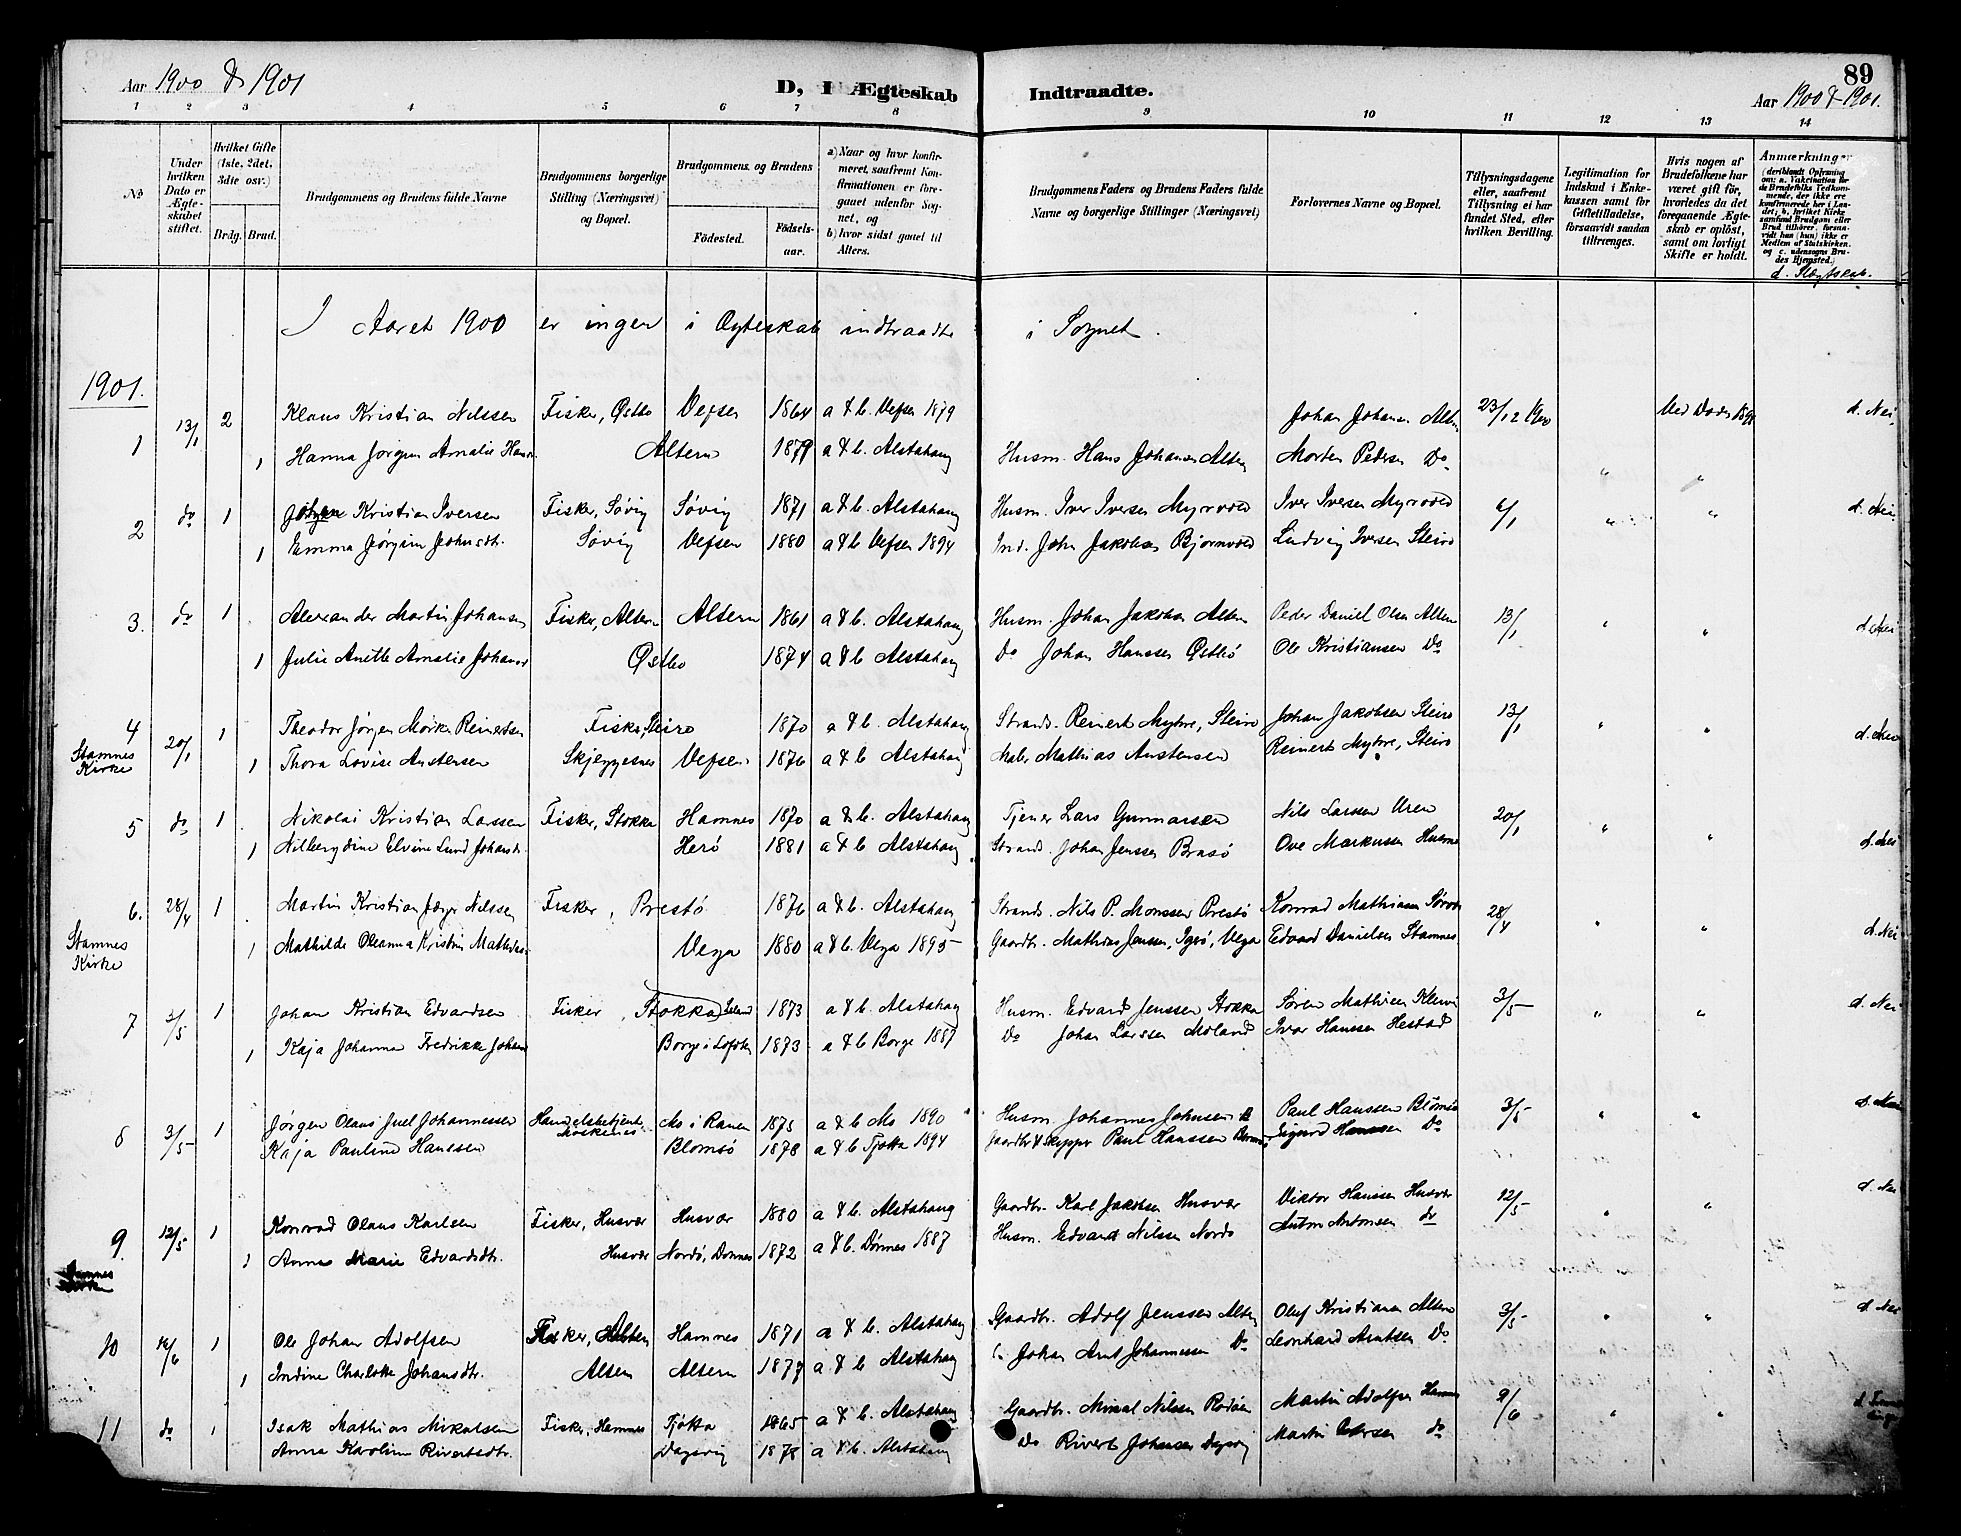 89
Aar 1900 & 1901
D, I Ægteskab Indtraadte.
Aar 1900 & 1901.
1 2 3 4 5 6 7 8 9 10 11 12 13 14
No
Under hvilken Dato er Ægteskabet stiftet.
Hvilket Gifte (1ste, 2det, 3dte osv.)
Brdg. Brud.
Brudgommens og Brudens fulde Navne
Brudgommens borgerlige Stilling (Næringsvei) og Bopæl.
Brudgommens og Brudens
Fødested.
Fødselsaar.
a) Naar og hvor konfirmeret, saafremt Konfirmationen er foregaaet udenfor Sognet, og
b) hvor sidst gaaet til Alters.
Brudgommens Faders og Brudens Faders fulde Navne og borgerlige Stillinger (Næringsvei)
Forlovernes Navne og Bopæl.
Tillysningsdagene eller, saafremt Tillysning ei har fundet Sted, efter hvilken Bevilling.
Legitimation for Indskud i Enkekassen samt for Giftetilladelse, forsaavidt saadan tiltrænges.
Hvis nogen af Brudefolkene har været gift før, hvorledes da det foregaaende Ægteskab er opløst, samt om lovligt Skifte er holdt.
Anmærkninger (deriblandt Oplysning om: a. Vakcination for de Brudefolks Vedkommende, der ikke ere konfirmerede her i Landet; b. hvilket Kirkesamfund Brudgom eller Brud tilhører, forsaavidt han (hun) ikke er Medlem af Statskirken. og c. udensogns Brudes Hjemsted.)
d. Slegtskab.
I Aaret 1900 er ingen i Egteskab indtraadte i Sognet.
1901.
1 13/1 2 Klaus Kristian Nilssen Fisker, Østbø Vefsen 1864 a & b. Vefsen 1879 Johan Johansen 23/12 1900 Ved Døden d. Nei
1 Hanna Jørgine Amalie Altern 1879 a & b. Alstahaug Husm. Hans Johansen Altern Morten Pedersen Do
2 do 1 Johan Kristian Iversen Fisker, Søvig Søvig 1871 a & b. Alstahaug Husm. Iver Iversen Myrvold Iver Iversen Myrvold 6/1 d. Nei
1 Emma Jørgine Johnsdtr. Søvig Vefsen 1880 a & b Vefsen 1894 Ind. John Jakobsen Bjørnvold Ludvig Iversen Steiro
3. do 1 Alexander Martin Johansen Fisker, Altern Altern 1861 a & b. Alstahaug Husm. Johan Jakobsen Altern Peder Daniel Olsen Altern 13/1 d. Nei
1 Julie Anette Amalie Østbø 1874 a & b. Alstahaug Do Johan Hanssen Østbø Ole Kristiansen Do
4 Stamnes Kirke 20/1 1 Theodor Jørgen Mørk Reinertsen Fisker, Steiro 1870 a & b. Alstahaug Strands. Reinert Myhre, Steiro Johan Jakobsen Steiro 13/1 d. Nei
1 Thora Lovise Anstensen Skjeggesnes Vefsen 1876 a & b. Alstahaug Maler Mathias Anstensen Reinert Myhre, Steiro
5 do 1 Nikolai Kristian Larssen Fisker, Stokka Hamnes 1870 a & b. Alstahaug Tjener Lars Gunnarsen Nils Larssen Uren 20/1 d. Nei
1 Elvine Lund Herø 1881 a & b Alstahaug Strands. Johan Jenssen Brasø Ove Markussen
6. Stamnes Kirke 28/4 1 Martin Kristian Nilssen Fisker, Prestø 1876 a & b. Alstahaug Strands. Nils P. Monssen Prestø Konrad Mathiasen 28/4 d. Nei
1 Mathilde Oleanna Kristine Vega 1880 a & b. Vega 1895 Gaardbr. Mathias Jenssen, Igerø, Vega Edvard Danielsen Stamnes
7 3/5 1 Johan Kristian Edvardsen Fisker, Stokka 1873 a & b. Alstahaug Husm. Edvard Jenssen Stokka Søren Mathisen 3/5 d. Nei
1 Kaja Johanna Fredrikke Borge i Lofoten 1873 a & b Borge 1887 Do Johan Larssen Moland Ivar Hanssen Hestad
8 3/5 1 Jørgen Olaus Juel Johannessen Handelsbetjent Mo i Ranen 1875 a & b Mo 1890 Husm. Johannes Johnsen Paul Hanssen Blomsø 3/5 d. Nei
Kaja Pauline Hanssen Blomsø 1878 a & b Tjøtta 1894 Gaardbr & Skipper Paul Hanssen Sigurd Hanssen Do
9. 12/5 1 Konrad Olaus Karlsen Fisker, Husvær Husvær 1880 a & b. Alstahaug Gaardbr. Karl Jakobsen Husvær Viktor Hanssen Husvær 12/5 d. Nei
Stamnes Kirke 1 Anna Marie Edvardsdtr. Husvær Nordø, Dønnes 1872 a & b. Dønnes 1887 Husm. Edvard Nilssen Nordø Anton Antonsen do
10 16/6 1 Ole Johan Adolfsen Fisker, Alten Hamnes 1871 a & b. Alstahaug Gaardbr. Adolf Jenssen Altern Oluf Kristiansen Altern 3/5 d. Nei
1 Indine Charlotte Johansdtr. Alsten Altern 1877 a & b Alstahaug Johan Arnt Johannessen Do Leonhard Arntsen Do
11 do 1 Isak Mathias Mikalsen Fisker, Hamnes Tjøtta 1865 a & b. Alstahaug Gaardbr. Mikal Nilssen Rødøen Martin Adolfsen Hamnes 9/6
Anna Karoline Rivertsdtr. Dagsvig 1878 a & b. Alstahaug Do Rivert Johansen Dagsvig Martin do